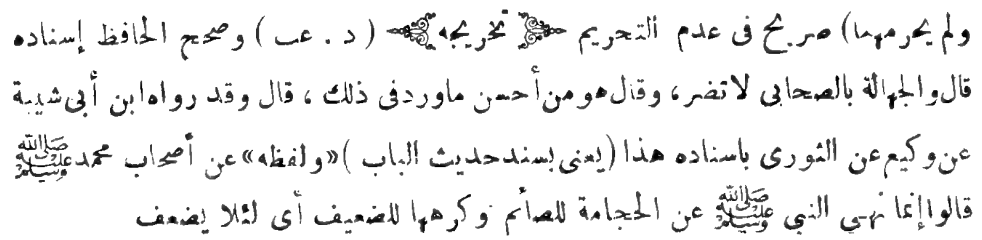 ولم يحرمهما) صريح فى عدم التحريم ﴿تخريجه﴾ (د . عب) وصحح الحافظ إسناده
قال والجهالة بالصحابى لا تضر، وقال هو من أحسن ماورد فى ذلك ، قال وقد رواه ابن أبى شيبة
عن وكيع عن الثورى باسناده هذا (يعنى بسند حديث الباب) «ولفظه» عن أصحاب محمد ﷺ
قالوا إنما نهى النبى ﷺ عن الحجامة للصائم وكرهها للضعيف أى لئلا يضعف